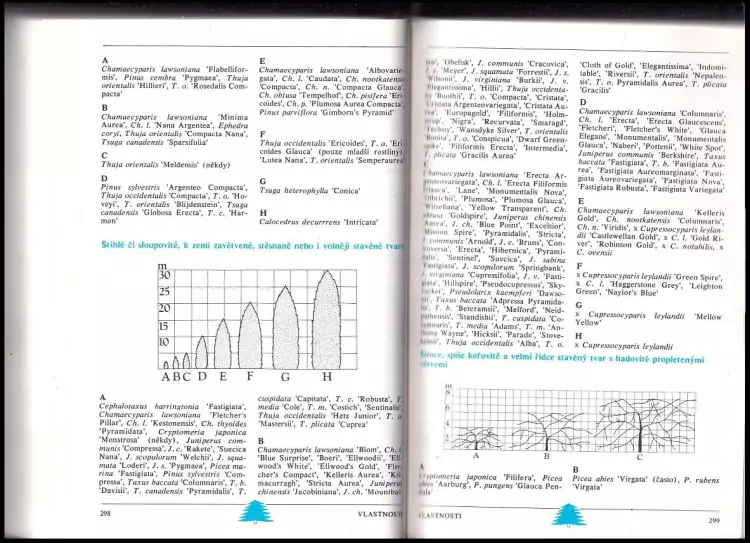 A
Chamaecyparis lawsoniana 'Flabellifor-
mis', Pinus cembra 'Pygmaea', Thuja
orientalis 'Hillieri', T. o. 'Rosedalis Com-
pacta'
B
Chamaecyparis lawsoniana 'Minima
Aurea', Ch. l. 'Nana Argentea', Ephedra
coryi, Thuja orientalis 'Compacta Nana',
Tsuga canadensis 'Sparsifolia'
C
Thuja orientalis 'Meldensis' (někdy)
D
Pinus sylvestris 'Argenteo Compacta',
Thuja occidentalis 'Compacta', T. o. 'Ho-
veyi', T. orientalis 'Blijdenstein', Tsuga
canadensis 'Globosa Erecta', T. c. 'Har-
mon'
E
Chamaecyparis lawsoniana 'Albovarie-
gata', Ch. l. 'Caudata', Ch. nootkatensis
'Compacta', Ch. n. 'Compacta Glauca',
Ch. obtusa 'Tempelhof', Ch. pisifera 'Eri-
coides', Ch. p. 'Plumosa Aurea Compacta',
Pinus parviflora 'Gimborn's Pyramid'
F
Thuja occidentalis 'Ericoides', T. o. 'Eri-
coides Glauca' (pouze mladší rostliny),
'Lutea Nana', T. orientalis 'Semperaurea'
G
Tsuga heterophylla 'Conica'
H
Calocedrus decurrens 'Intricata'
Štíhlé či sloupovité, k zemi zavětvené, stěsnaně nebo i volněji stavěné tvary
m
30
25
20
15
10
A B C D E F G H
A
Cephalotaxus harringtonia 'Fastigiata',
Chamaecyparis lawsoniana 'Fletcher's
Pillar', Ch. l. 'Kestonensis', Ch. thyoides
'Pyramidata', Cryptomeria japonica
'Monstrosa' (někdy), Juniperus com-
munis 'Compressa', J. c. 'Rakete', 'Suecica
Nana', J. scopulorum 'Welchii', J. squa-
mata 'Loderi', J. s. 'Pygmaea', Picea ma-
rina 'Fastigiata', Pinus sylvestris 'Com-
pressa', Taxus baccata 'Columnaris', T. b.
'Davisii', T. canadensis 'Pyramidalis', T.
cuspidata 'Capitata', T. c. 'Robusta', T.
media 'Cole', T. m. 'Costich', 'Sentinalis',
Thuja occidentalis 'Hetz Junior', T. o.
'Mastersii', T. plicata 'Cuprea'
B
Chamaecyparis lawsoniana 'Blom', Ch. l.
'Blue Surprise', 'Boeri', 'Ellwoodii', 'Ell-
wood's White', 'Ellwood's Gold', 'Flet-
cher's Compact', 'Kelleris Aurea', 'Kil-
macurragh', 'Stricta Aurea', Juniperus
chinensis 'Jacobiniana', J. ch. 'Mountbat-
298
VLASTNOSTI
'Obelisk', J. communis 'Cracovica',
'Meyer', J. squamata 'Forrestii', J. s.
'Wilsonii', J. virginiana 'Burkii', J. v.
'Elegantissima', 'Hillii', Thuja occidenta-
'Boothii', T. o. 'Compacta', 'Cristata',
'Cristata Argenteovariegata', 'Cristata Au-
'Europagold', 'Filiformis', 'Holm-
'Nigra', 'Recurvata', 'Smaragd',
'Techny', 'Wansdyke Silver', T. orientalis
'Bonita', T. o. 'Conspicua', 'Dwarf Green-
'Filiformis Erecta', 'Intermedia',
T. plicata 'Gracilis Aurea'
C
Chamaecyparis lawsoniana 'Erecta Ar-
genteovariegata', Ch. l. 'Erecta Filiformis
Glauca', 'Lane', 'Monumentalis Nova',
'Olbrichii', 'Plumosa', 'Plumosa Glauca',
'Witzeliana', 'Yellow Transparent', Ch.
'Goldspire', Juniperus chinensis
'Aurea', J. ch. 'Blue Point', 'Excelsior',
Spire', 'Pyramidalis', 'Stricta',
J. communis 'Arnold', J. c. 'Bruns', 'Con-
'Erecta', 'Hibernica', 'Pyrami-
'Sentinel', 'Suecica', J. sabina
'Fastigiata', J. scopulorum 'Springbank',
J. virginiana 'Cupressifolia', J. v. 'Fasti-
'Hillspire', 'Pseudocupressus', 'Sky-
rocket', Pseudolarix kaempferi 'Dawso-
Taxus baccata 'Adpressa Pyramida-
T. b. 'Beteramsii', 'Melford', 'Neid-
'Standishii', T. cuspidata 'Co-
lumnaris', T. media 'Adams', T. m. 'An-
thony Wayne', 'Hicksii', 'Parade', 'Stove-
Thuja occidentalis 'Alba', T. o.
'Cloth of Gold', 'Elegantissima', 'Indomi-
table', 'Riversii', T. orientalis 'Nepalen-
sis', T. o. Pyramidalis Aurea', T. plicata
'Gracilis'
D
Chamaecyparis lawsoniana 'Columnaris',
Ch. l. 'Erecta', 'Erecta Glaucescens',
'Fletcheri', 'Fletcher's White', 'Glauca
Elegans', 'Monumentalis', 'Monumentalis
Glauca', 'Naberi', 'Pottenii', 'White Spot',
Juniperus communis 'Berkshire', Taxus
baccata 'Fastigiata', T. b. 'Fastigiata Au-
rea', 'Fastigiata Aureomarginata', 'Fasti-
giata Aureovariegata', 'Fastigiata Nova',
'Fastigiata Robusta', 'Fastigiata Variegata'
E
Chamaecyparis lawsoniana 'Kelleris
Gold', Ch. nootkatensis 'Columnaris',
Ch. n. 'Viridis', x Cupressocyparis leylan-
dii 'Castlewellan Gold', x C. l. 'Gold Ri-
ver', 'Robinson Gold', x C. notabilis, x
C. ovensii
F
x Cupressocyparis leylandii 'Green Spire',
x C. l. 'Haggerstone Grey', 'Leighton
Green', 'Naylor's Blue'
G
x Cupressocyparis leylandii 'Mellow
Yellow'
H
x Cupressocyparis leylandii
spíše keřovitě a velmi řídce stavěný tvar s hadovitě propletenými
větvemi
m
8
6
4
2
A B C
A
Cryptomeria japonica 'Filifera', Picea
abies 'Aarburg', P. pungens 'Glauca Pen-
dula'
B
Picea abies 'Virgata' (často), P. rubens
'Virgata'
VLASTNOSTI
299